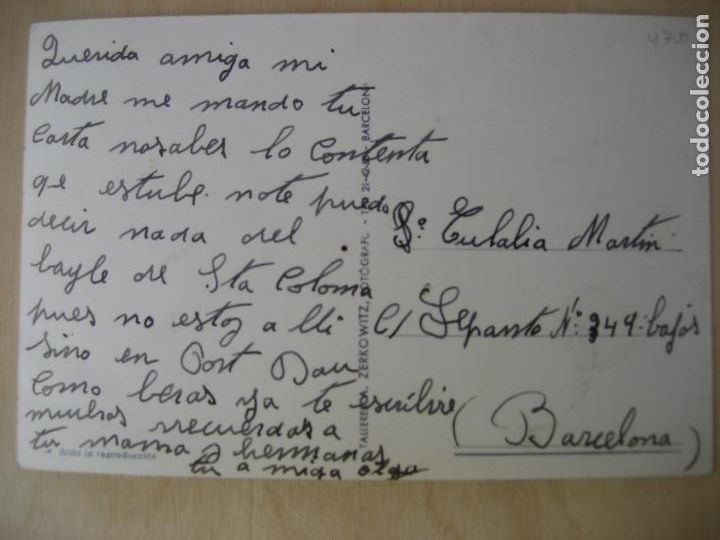 Querida amiga mi
Madre me mando tu
Carta nosabes lo contenta
qe estube. note puedo
decir nada del
bayle de Sta Coloma
pues no estoy a lli
sino en Port Bou
como beras ya te escribire
muchos recuerdos a
tu mama y hermanas
tu amiga olga
Sª. Eulalia Martin
C/ Lepanto Nº. 349-bajos
(Barcelona)
TALLERES A. ZERKOWITZ, FOTÓGRAFO. - BARCELONA
ibida la reproducción
475
todocoleccion